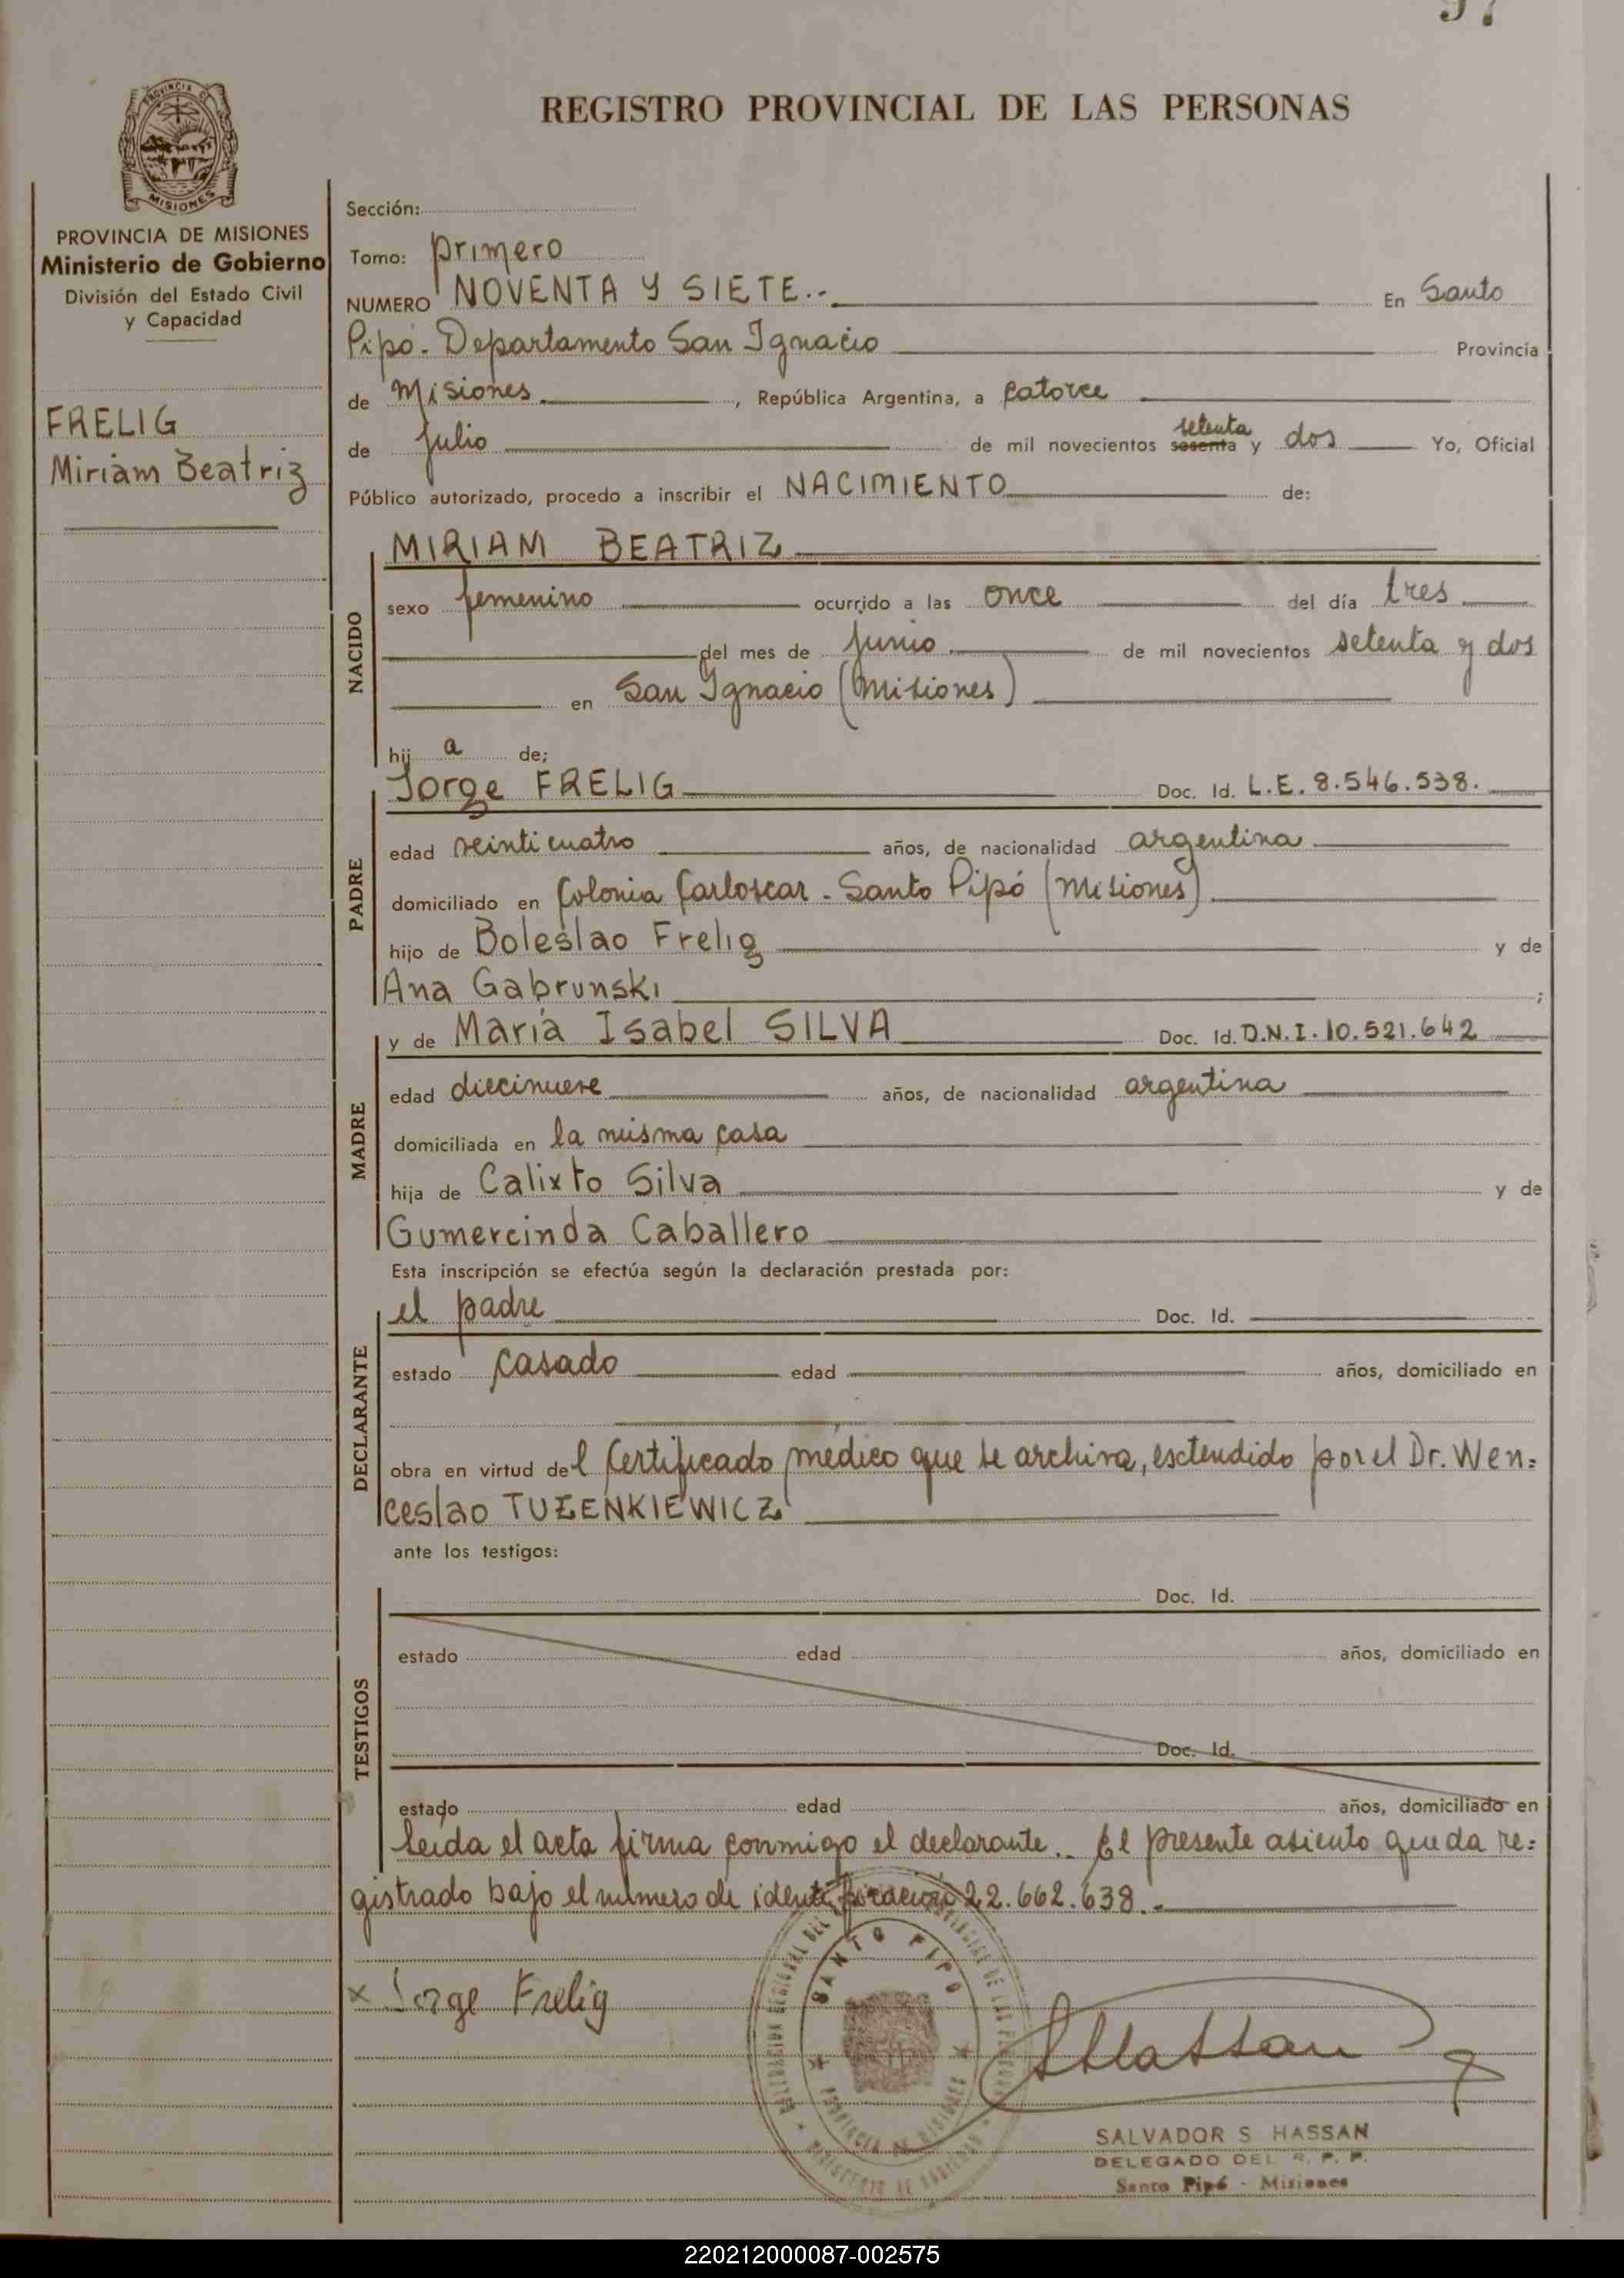 97
REGISTRO PROVINCIAL DE LAS PERSONAS
PROVINCIA DE
MISIONES
PROVINCIA DE MISIONES
Ministerio de Gobierno
División del Estado Civil
y Capacidad
FRELIG
Miriam Beatriz
Sección:
Tomo: primero
NUMERO NOVENTA Y SIETE.- En Santo
Pipó.- Departamento San Ignacio Provincia
de Misiones, República Argentina, a catorce
de julio de mil novecientos sesenta setenta y dos Yo, Oficial
Público autorizado, procedo a inscribir el NACIMIENTO de:
NACIDO
MIRIAM BEATRIZ
sexo femenino ocurrido a las once del día tres
del mes de junio de mil novecientos setenta y dos
en San Ignacio (Misiones)
hij a de;
PADRE
Jorge FRELIG Doc. Id. L.E. 8.546.538.
edad veinticuatro años, de nacionalidad argentina
domiciliado en Colonia Carloscar - Santo Pipó (Misiones)
hijo de Boleslao Frelig y de
Ana Gabrunski ;
MADRE
y de María Isabel SILVA Doc. Id. D.N.I. 10.521.642
edad diecinueve años, de nacionalidad argentina
domiciliada en la misma casa
hija de Calixto Silva y de
Gumercinda Caballero
Esta inscripción se efectúa según la declaración prestada por:
DECLARANTE
el padre Doc. Id.
estado casado edad años, domiciliado en
obra en virtud del Certificado médico que se archiva, esctendido por el Dr. Wen=
ceslao TUZENKIEWICZ
ante los testigos:
TESTIGOS
Doc. Id.
estado edad años, domiciliado en
Doc. Id.
estado edad años, domiciliado en
Leída el acta firma conmigo el declarante.. El presente asiento queda re=
gistrado bajo el número de identificación 22.662.638.-
x Jorge Frelig
SANTO PIPO
PROVINCIA DE MISIONES
MINISTERIO DE GOBIERNO
SHassan
SALVADOR S. HASSAN
DELEGADO DEL R. P. P.
Santo Pipó - Misiones
220212000087-002575